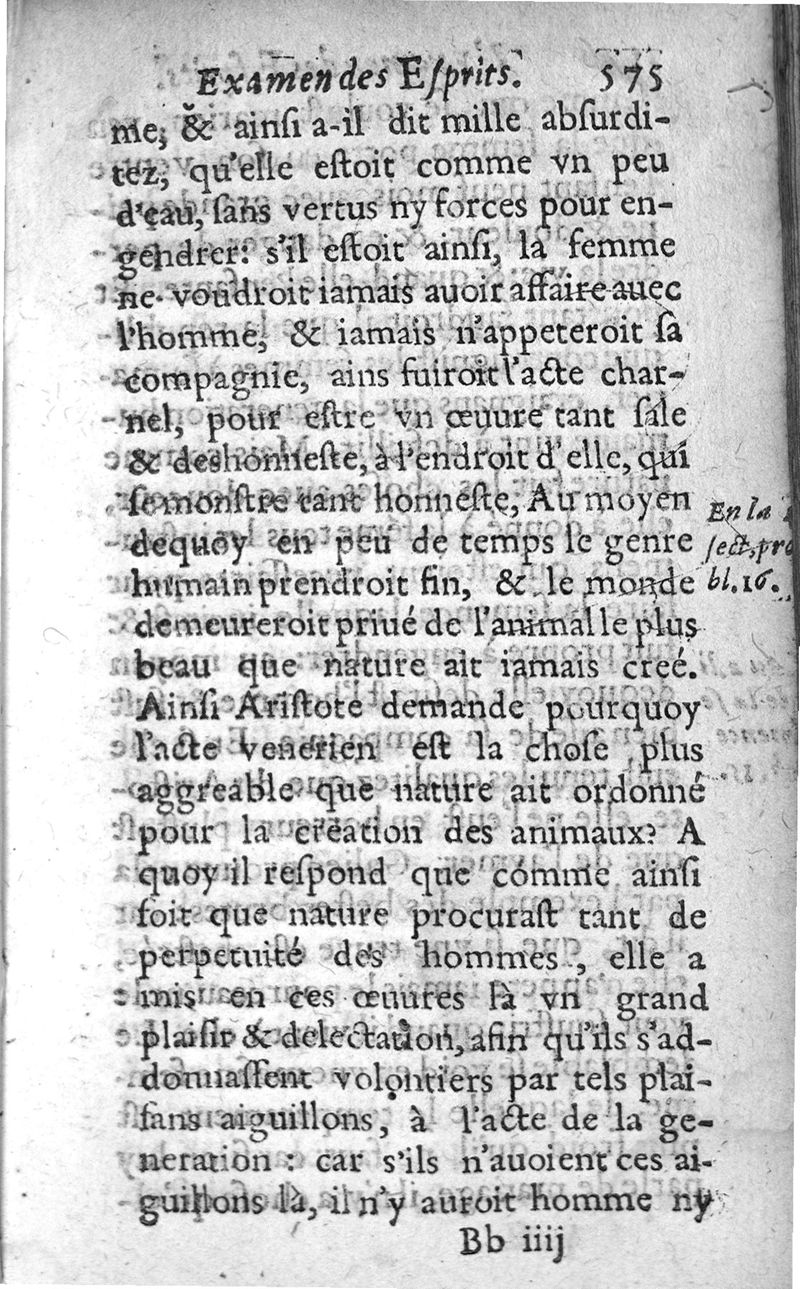 Examen des Eſprits. 575
me, & ainſi a-il dit mille abſurdi-
tez, qu'elle eſtoit comme vn peu
d'eau, ſans vertus ny forces pour en-
gendrer: s'il eſtoit ainſi, la femme
ne voudroit iamais auoir affaire auec
l'homme, & iamais n'appeteroit ſa
compagnie, ains fuiroit l'acte char-
nel, pour eſtre vn œuure tant ſale
& deshonneſte, à l'endroit d'elle, qui
ſe monſtre tant honneſte, Au moyen
dequoy en peu de temps le genre
humain prendroit fin, & le monde
demeureroit priué de l'animal le plus
beau que nature ait iamais creé.
Ainſi Ariſtote demande pourquoy
l'acte venerien eſt la choſe plus
aggreable que nature ait ordonné
pour la creation des animaux? A
quoy il reſpond que comme ainſi
ſoit que nature procuraſt tant de
perpetuité des hommes, elle a
mis en ces œuures là vn grand
plaiſir & delectation, afin qu'ils s'ad-
donnaſſent volontiers par tels plai-
ſans aiguillons, à l'acte de la ge-
neration : car s'ils n'auoient ces ai-
guillons là, il n'y auroit homme ny
Bb iiij
En la
ſect. pro
bl. 16.